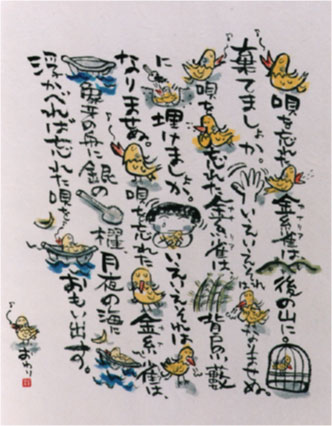 唄を忘れた金絲雀は後の山に。
棄てましょか。いえいえそれはなりませぬ。
唄を忘れた金絲雀は背戸の藪
に埋けましょか。いえいえそれは
なりませぬ。唄を忘れた金絲雀は、
象牙の舟に銀の櫂月夜の海に
浮かべれば忘れた唄をおもい出す。
おわり